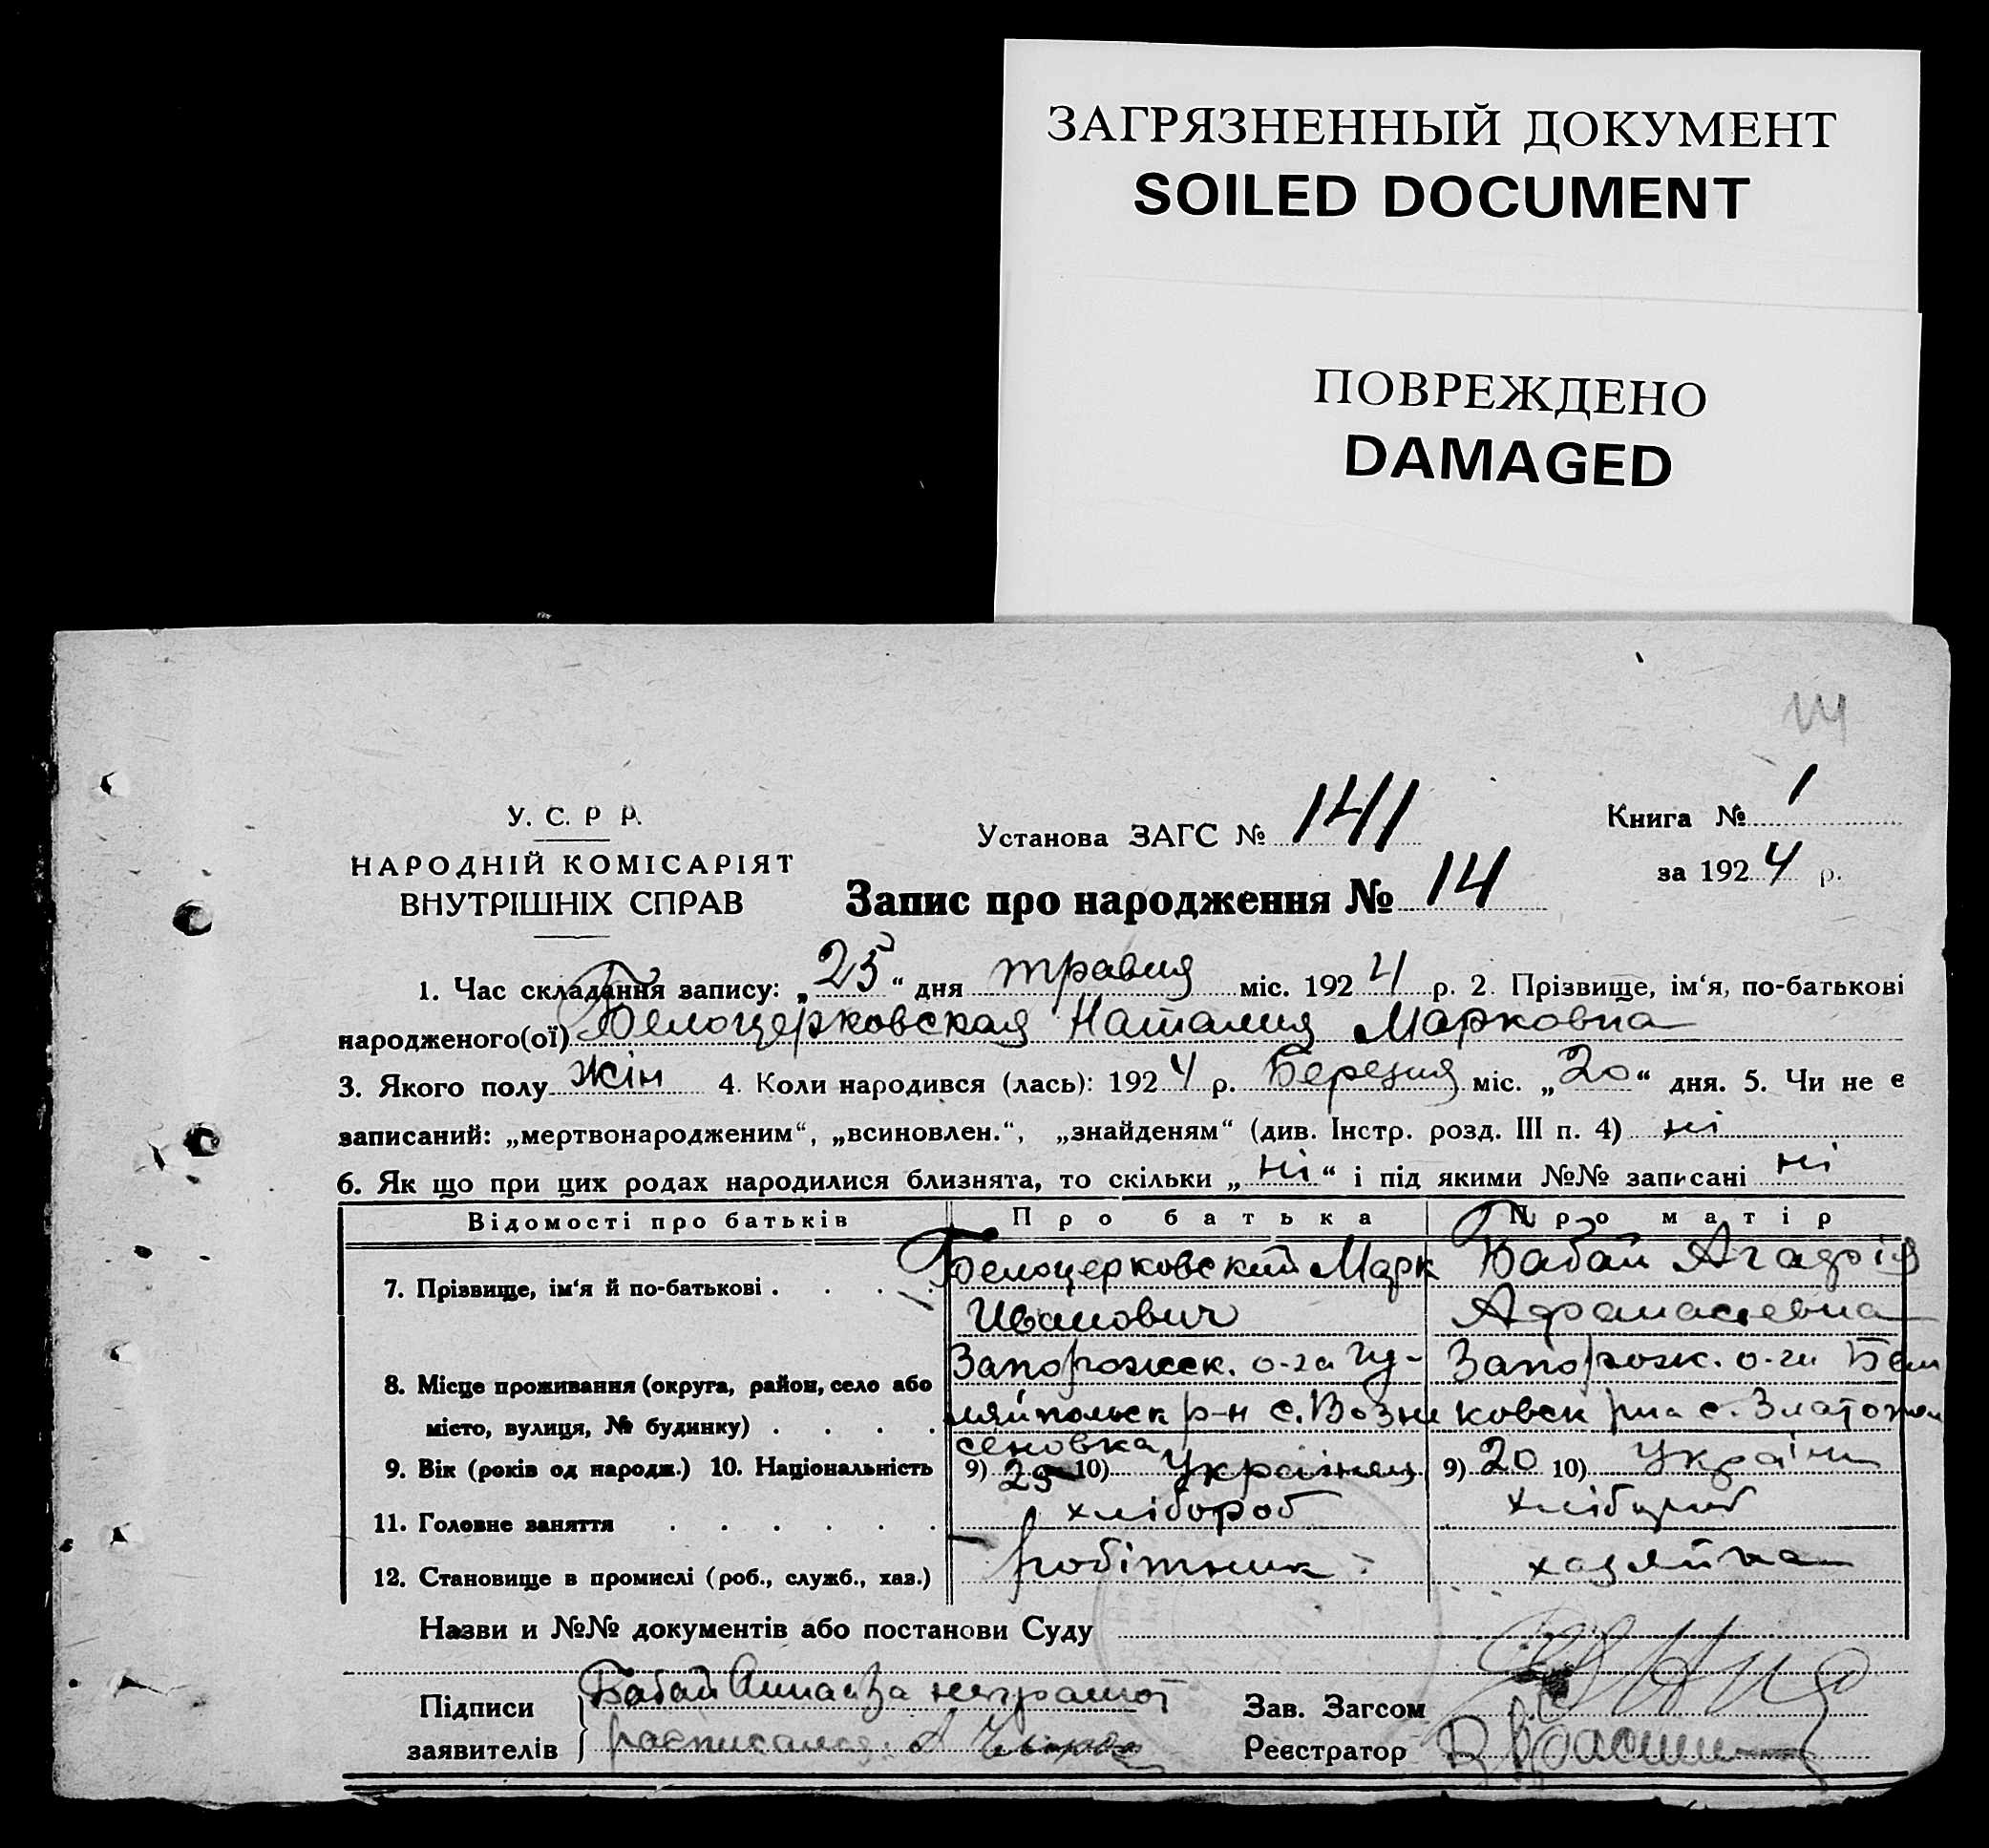 ЗАГРЯЗНЕННЫЙ ДОКУМЕНТ
SOILED DOCUMENT
ПОВРЕЖДЕНО
DAMAGED
14
У. С. Р Р.
НАРОДНІЙ КОМІСАРІЯТ
ВНУТРІШНІХ СПРАВ
Установа ЗАГС № 141
Книга № 1
за 1924 р.
Запис про народження № 14
1. Час складання запису: „25“ дня травня міс. 1924 р. 2. Прізвище, ім‘я, по-батькові
народженого(ої) Белоцерковская Наталия Марковна
3. Якого полу жін 4. Коли народився (лась): 1924 р. Березня міс. „20“ дня. 5. Чи не є
записаний: „мертвонародженим“, „всиновлен.“, „знайденям“ (див. Інстр. розд. III п. 4) ні
6. Як що при цих родах народилися близнята, то скільки „ні“ і під якими №№ записані ні
Відомості про батьків Про батька Про матір
7. Прізвище, ім‘я й по-батькові . . . . Белоцерковский Марк Бабай
Иванович Афанасиевна
8. Місце проживання (округа, район, село або Запорожск. о-га Гу- Запорожск. о-ги Бел
місто, вулиця, № будинку) . . . . ляйпольск р-н с. Возне ковск р-на с. Златопол
сеновка
9. Вік (років од народж.) 10. Національність 9) 25 10) Українец 9) 20 10) Україн
11. Головне заняття . . . . . . хлібороб хлібороб
12. Становище в промислі (роб., служб., хаз.) робітник хазяйка
Назви и №№ документів або постанови Суду
Підписи Бабай Анна за неграмот
заявителів расписался
Зав. Загсом
Реєстратор